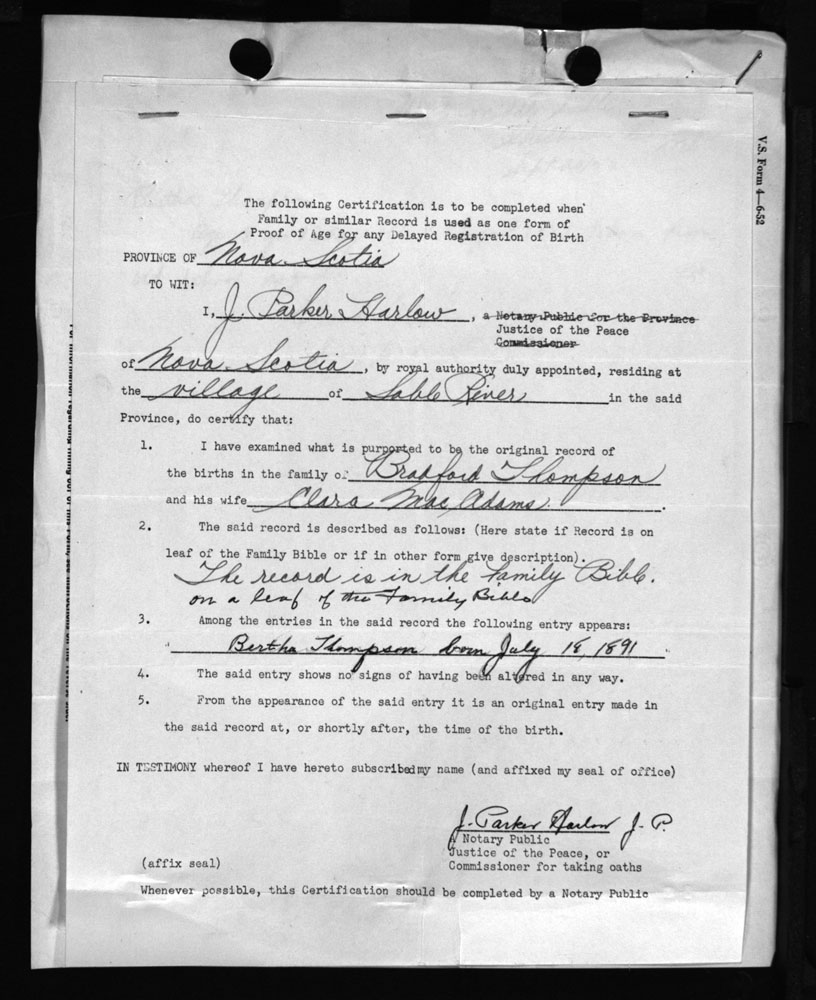 V.S. Form 4—6-52
The following Certification is to be completed when
Family or similar Record is used as one form of
Proof of Age for any Delayed Registration of Birth
PROVINCE OF Nova Scotia
TO WIT:
I, J. Parker Harlow, a Notary Public for the Province
Justice of the Peace
Commissioner
of Nova Scotia, by royal authority duly appointed, residing at
the village of Sable River in the said
Province, do certify that:
1. I have examined what is purported to be the original record of
the births in the family of Bradford Thompson
and his wife Clara Mac Adams.
2. The said record is described as follows: (Here state if Record is on
leaf of the Family Bible or if in other form give description).
The record is in the Family Bible.
on a leaf of the Family Bible
3. Among the entries in the said record the following entry appears:
" Bertha Thompson born July 18, 1891 "
4. The said entry shows no signs of having been altered in any way.
5. From the appearance of the said entry it is an original entry made in
the said record at, or shortly after, the time of the birth.
IN TESTIMONY whereof I have hereto subscribed my name (and affixed my seal of office)
J. Parker Harlow J. P.
A Notary Public
Justice of the Peace, or
(affix seal) Commissioner for taking oaths
Whenever possible, this Certification should be completed by a Notary Public